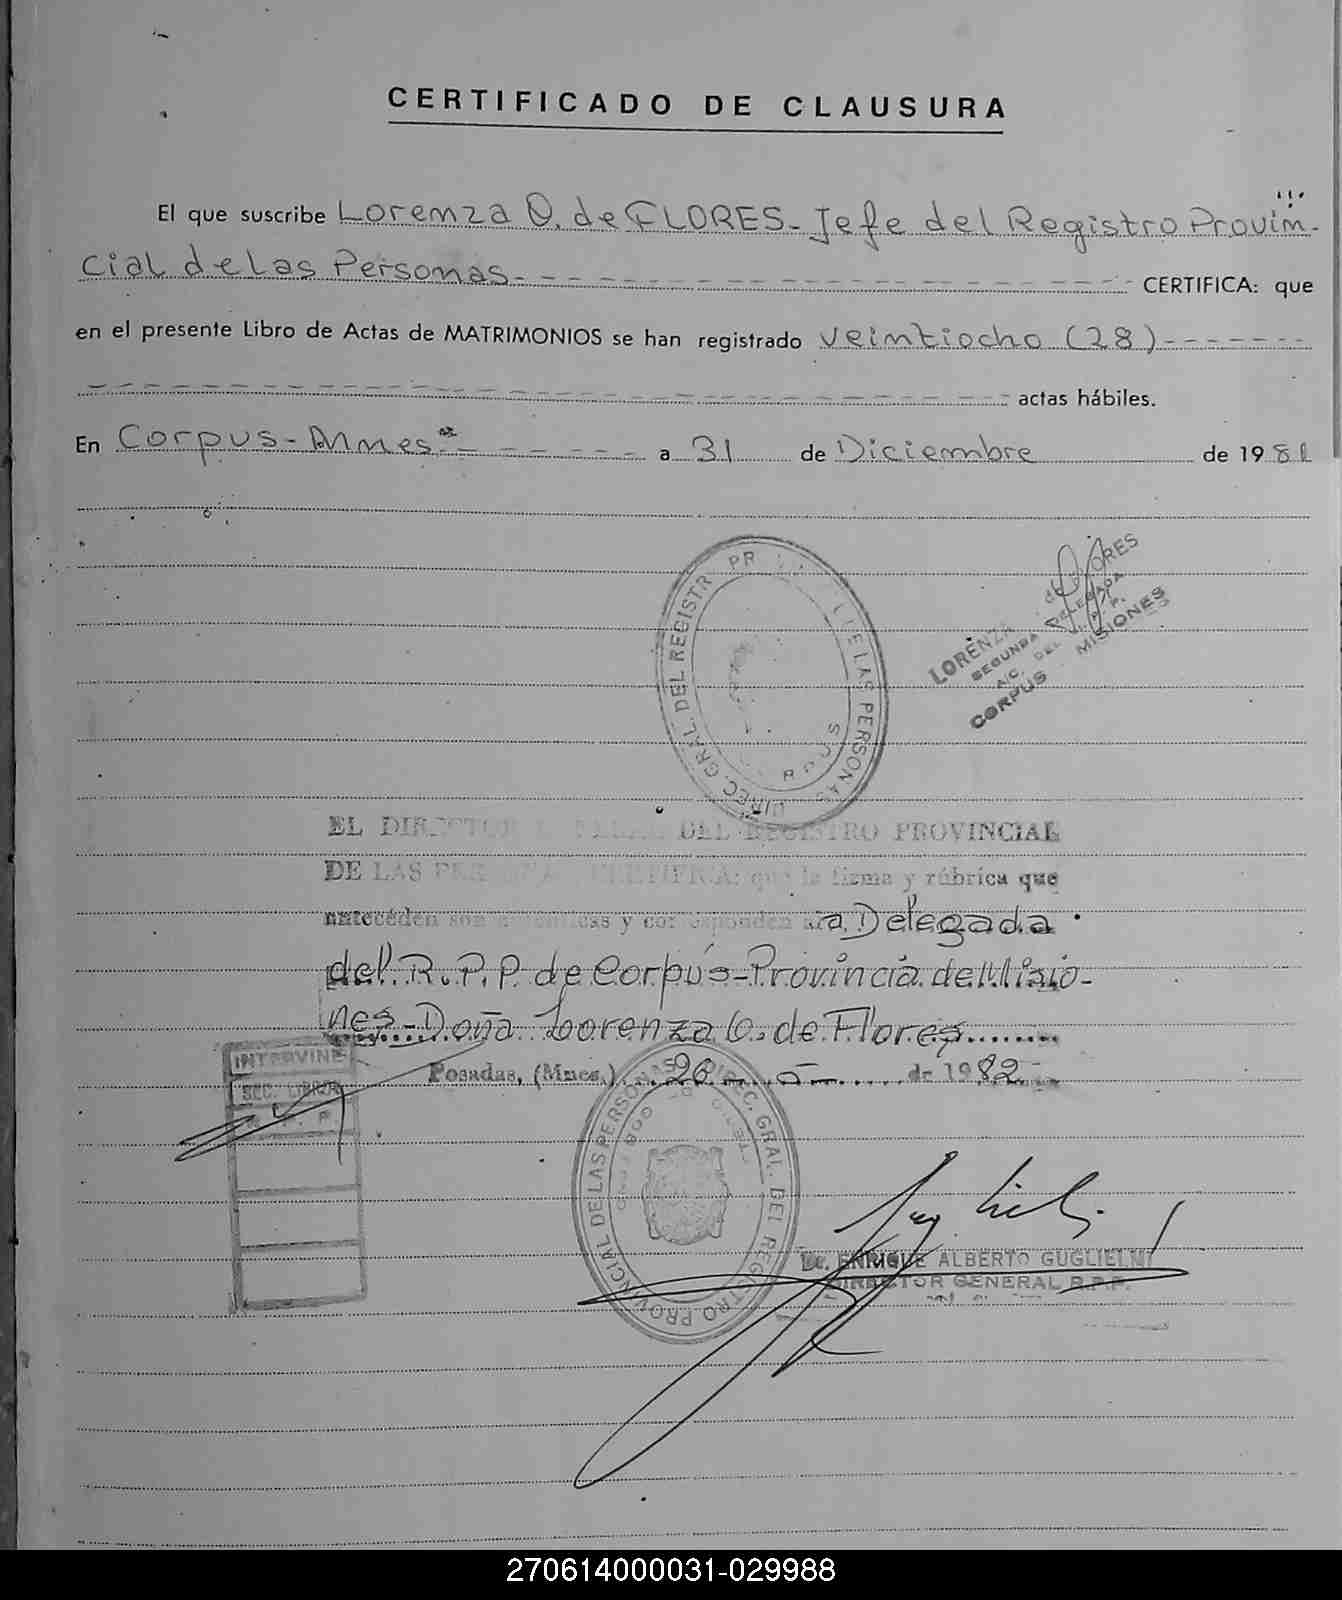 CERTIFICADO DE CLAUSURA
El que suscribe Lorenza O. de FLORES - Jefe del Registro Provin-
cial de las Personas - CERTIFICA: que
en el presente Libro de Actas de MATRIMONIOS se han registrado veintiocho (28)
actas hábiles.
En Corpus - Mnes a 31 de Diciembre de 1981
DIREC. GRAL. DEL REGISTR PR DE LAS PERSONAS
LORENZA de FLORES
SEGUNDA DELEGADA
A/C. DEL R. P. P.
CORPUS MISIONES
EL DIRECTOR GENERAL DEL REGISTRO PROVINCIAL
DE LAS PERSONAS CERTIFICA: que la firma y rúbrica que
anteceden son auténticas y corresponden a la Delegada
del R. P. P. de Corpus - Provincia de Misio-
nes - Doña Lorenza O. de Flores
Posadas, (Mnes.) 26 - 5 - de 1982
INTERVINE
SEC. LIBROS
R. P. P.
DIREC. GRAL. DEL REGISTRO PROVINCIAL DE LAS PERSONAS
Dr. ENRIQUE ALBERTO GUGLIELMI
DIRECTOR GENERAL R.P.P.
270614000031-029988